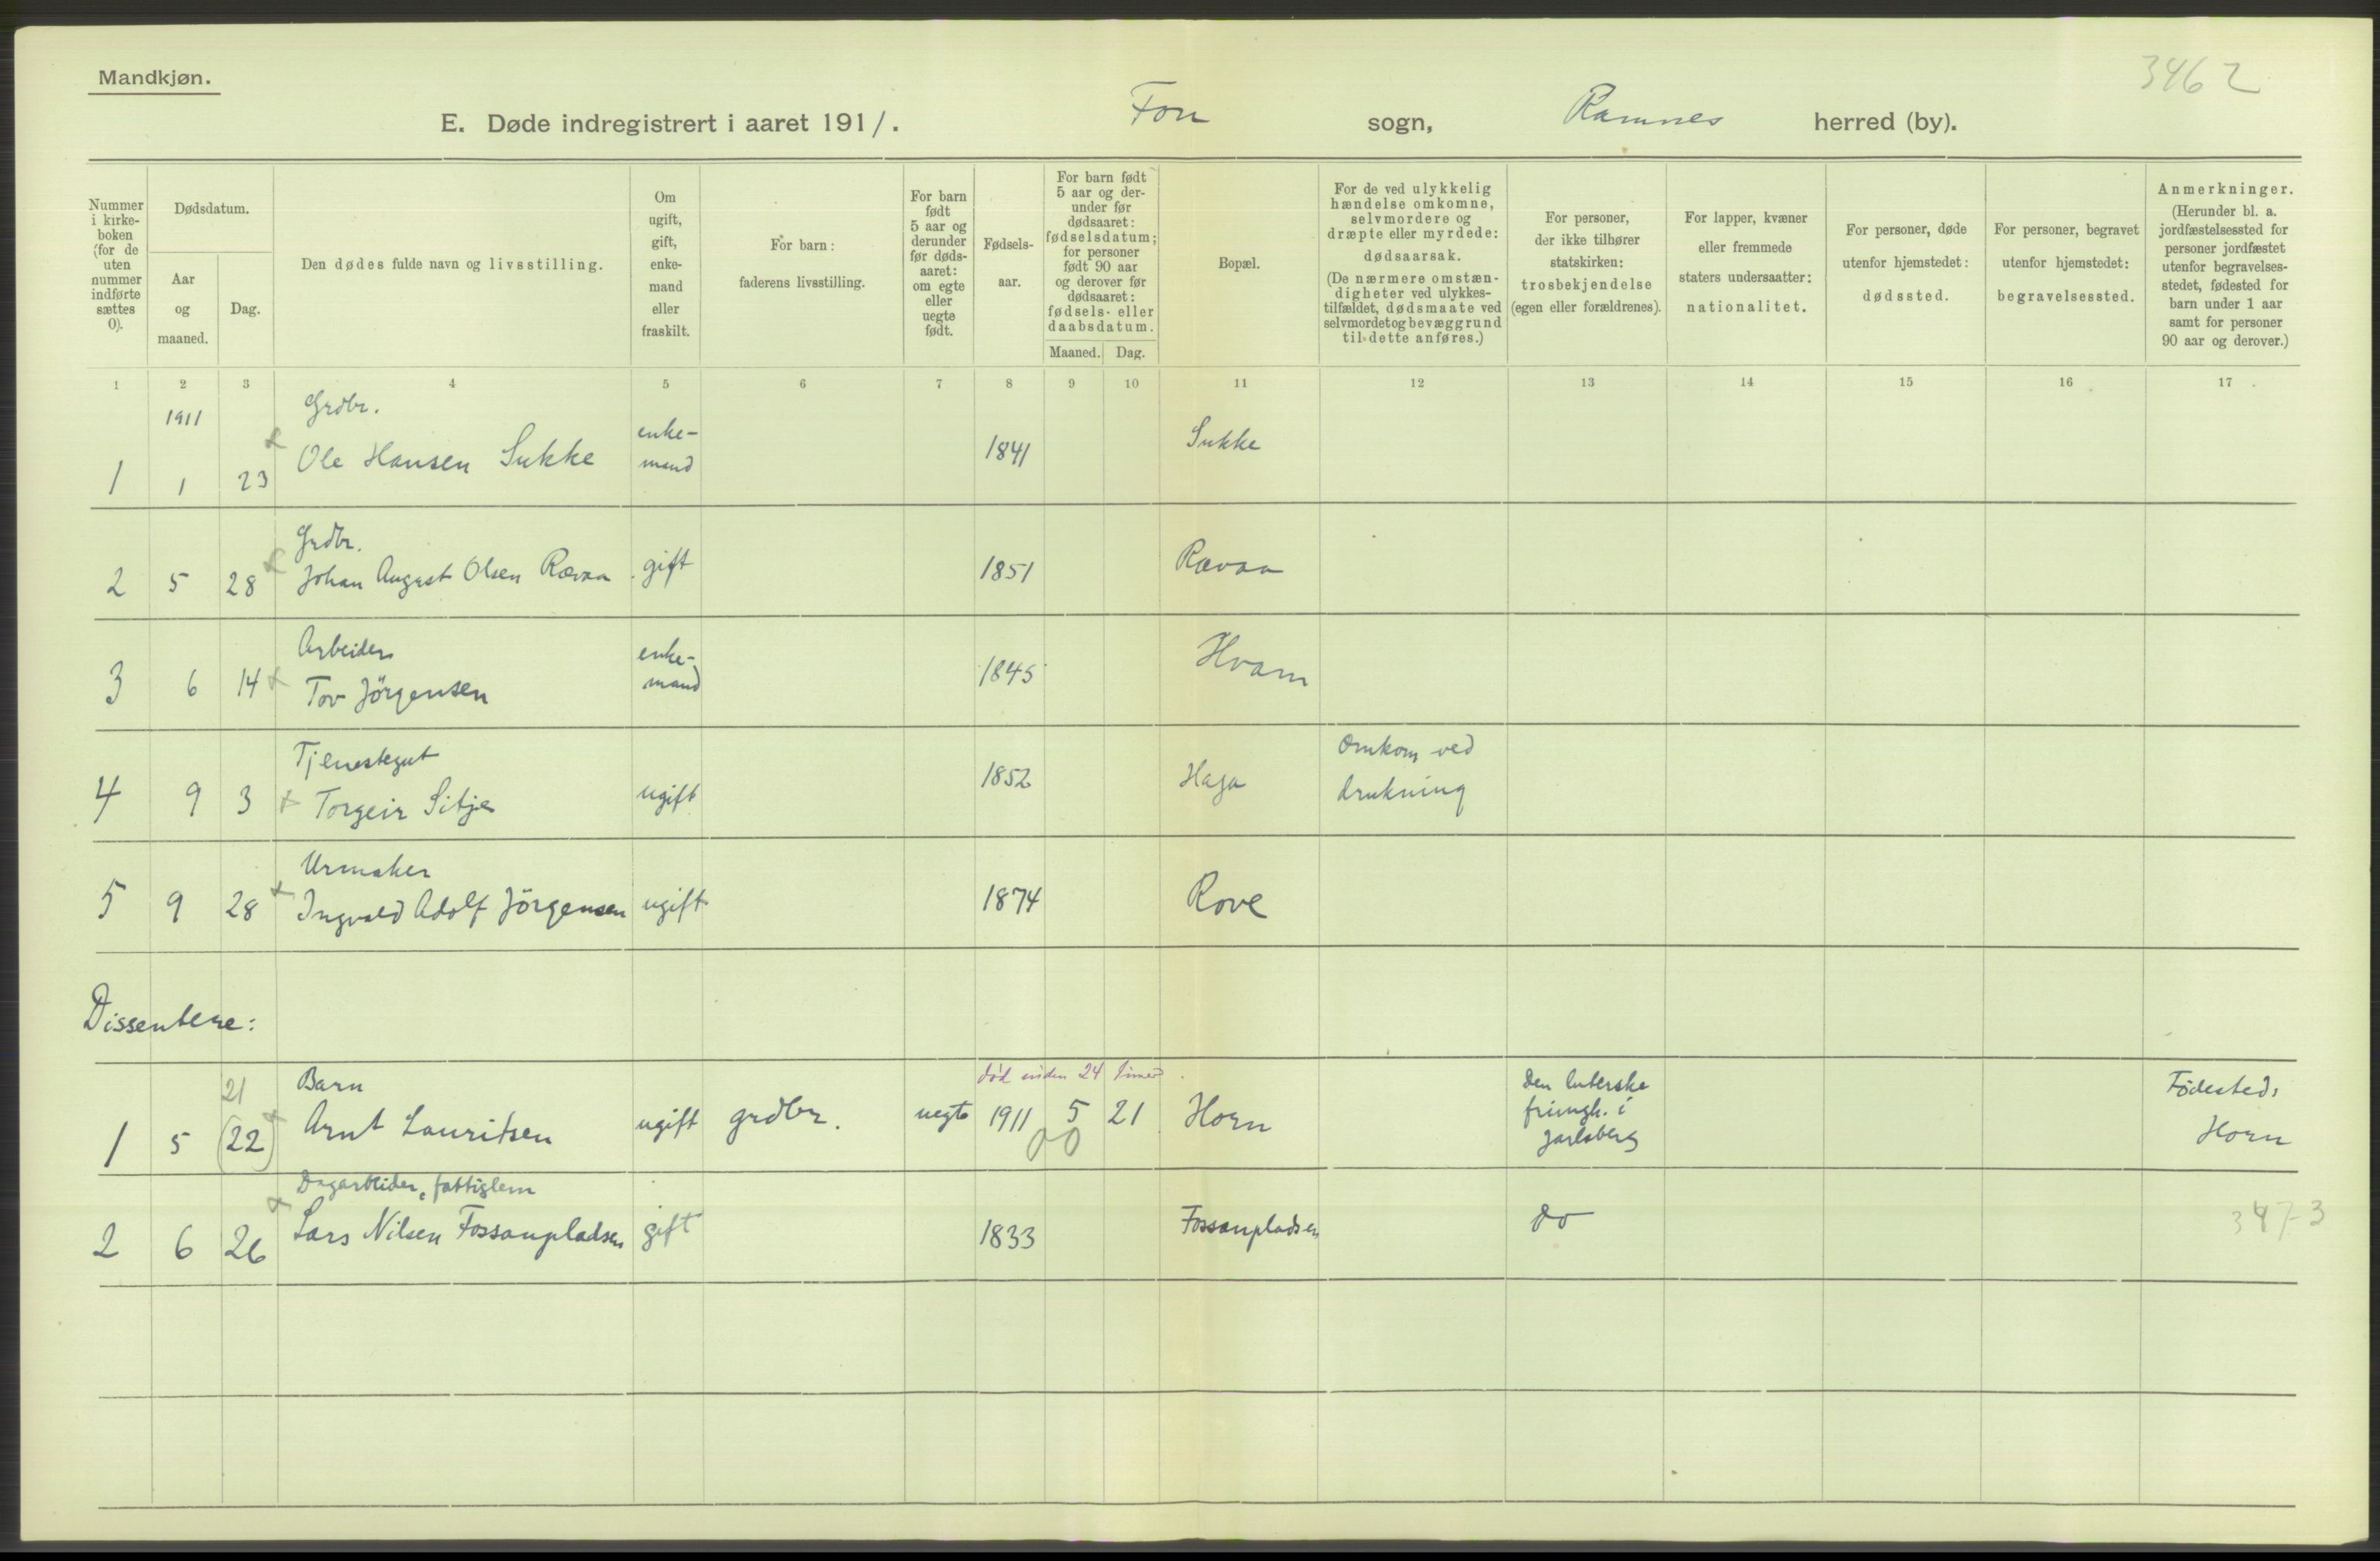 Mandkjøn.
3462
E. Døde indregistrert i aaret 1911. Fon sogn, Ramnes herred (by).
Nummer i kirkeboken (for de uten nummer indførte sættes 0).
Dødsdatum.
Aar og maaned.
Dag.
Den dødes fulde navn og livsstilling.
Om ugift, gift, enkemand eller fraskilt.
For barn: faderens livsstilling.
For barn født 5 aar og derunder før dødsaaret: om egte eller uegte født.
Fødselsaar.
For barn født 5 aar og derunder før dødsaaret: fødselsdatum; for personer født 90 aar og derover før dødsaaret: fødsels- eller daabsdatum.
Maaned. Dag.
Bopæl.
For de ved ulykkelig hændelse omkomne, selvmordere og dræpte eller myrdede: dødsaarsak. (De nærmere omstændigheter ved ulykkestilfældet, dødsmaate ved selvmordet og bevæggrund til dette anføres.)
For personer, der ikke tilhører statskirken: trosbekjendelse (egen eller forældrenes).
For lapper, kvæner eller fremmede staters undersaatter: nationalitet.
For personer, døde utenfor hjemstedet: dødssted.
For personer, begravet utenfor hjemstedet: begravelsessted.
Anmerkninger. (Herunder bl. a. jordfæstelsessted for personer jordfæstet utenfor begravelsesstedet, fødested for barn under 1 aar samt for personer 90 aar og derover.)
1 2 3 4 5 6 7 8 9 10 11 12 13 14 15 16 17
1911 Grdbr.
1 1 23 Ole Hansen Sukke enke-mand 1841 Sukke
Grdbr.
2 5 28 Johan August Olsen Rævaa gift 1851 Rævaa
Arbeider
3 6 14 Tov Jörgensen enke-mand 1845 Hvam
Tjenestegut
4 9 3 Torgeir Sitje ugift 1852 Haga Omkom ved drukning
Urmaker
5 9 28 Ingvald Adolf Jörgensen ugift 1874 Rove
Dissentere:
21 Barn død inden 24 timer
1 5 (22) Arnt Lauritsen ugift grdbr. uegte 1911 5 21 Horn Den luterske frimgh. i Jarlsberg Födested: Horn
00
Dagarbeider, fattiglem
2 6 26 Lars Nilsen Fossanpladsen gift 1833 Fossanpladsen do
3473